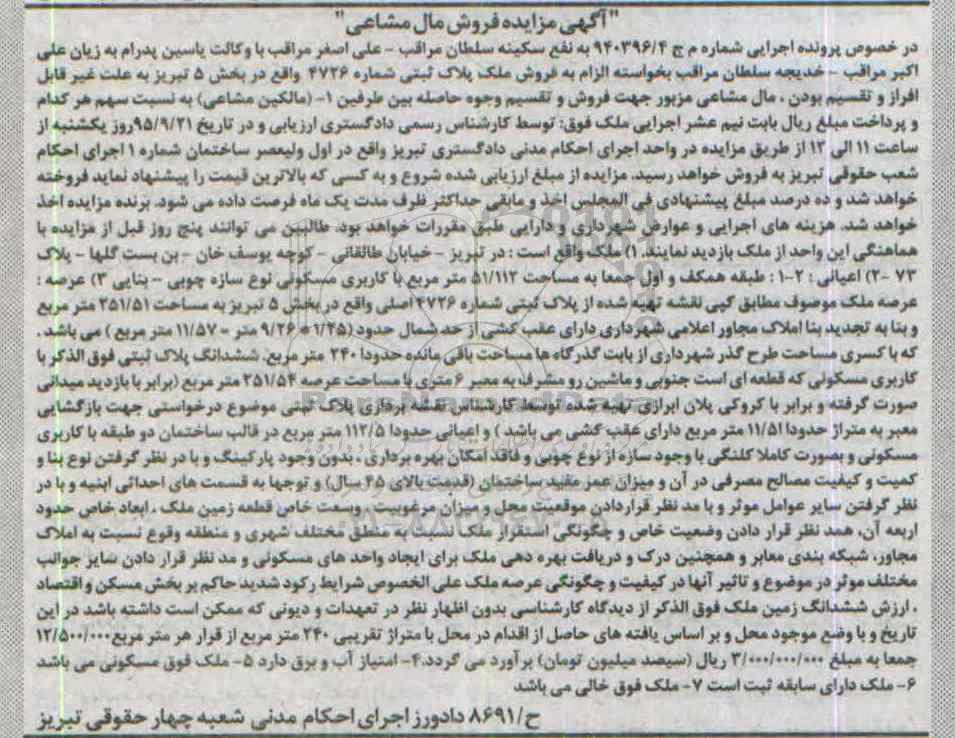 "آگهی مزایده فروش مال مشاعی"
در خصوص پرونده اجرایی شماره م ج ۹۴۰۳۹۶/۴ به نفع سکینه سلطان مراقب - علی اصغر مراقب با وکالت یاسین پدرام به زیان علی
اکبر مراقب - خدیجه سلطان مراقب بخواسته الزام به فروش ملک پلاک ثبتی شماره ۴۷۲۶ واقع در بخش ۵ تبریز به علت غیر قابل
افراز و تقسیم بودن ، مال مشاعی مزبور جهت فروش و تقسیم وجوه حاصله بین طرفین ۱- (مالکین مشاعی) به نسبت سهم هر کدام
و پرداخت مبلغ ریال بابت نیم عشر اجرایی ملک فوق: توسط کارشناس رسمی دادگستری ارزیابی و در تاریخ ۹۵/۹/۲۱روز یکشنبه از
ساعت ۱۱ الی ۱۲ از طریق مزایده در واحد اجرای احکام مدنی دادگستری تبریز واقع در اول ولیعصر ساختمان شماره ۱ اجرای احکام
شعب حقوقی تبریز به فروش خواهد رسید. مزایده از مبلغ ارزیابی شده شروع و به کسی که بالاترین قیمت را پیشنهاد نماید فروخته
خواهد شد و ده درصد مبلغ پیشنهادی فی المجلس اخذ و مابقی حداکثر ظرف مدت یک ماه فرصت داده می شود. برنده مزایده اخذ
خواهد شد. هزینه های اجرایی و عوارض شهرداری و دارایی طبق مقررات خواهد بود. طالبین می توانند پنج روز قبل از مزایده با
هماهنگی این واحد از ملک بازدید نمایند. ۱) ملک واقع است : در تبریز - خیابان طالقانی - کوچه یوسف خان - بن بست گلها - پلاک
۷۳ -۲) اعیانی : ۲-۱ : طبقه همکف و اول جمعا به مساحت ۵۱/۱۱۲ متر مربع با کاربری مسکونی نوع سازه چوبی - بنایی ۳) عرصه :
عرصه ملک موصوف مطابق کپی نقشه تهیه شده از پلاک ثبتی شماره ۴۷۲۶ اصلی واقع در بخش ۵ تبریز به مساحت ۲۵۱/۵۱ متر مربع
و بنا به تجدید بنا املاک مجاور اعلامی شهرداری دارای عقب کشی از حد شمال حدود (۱/۲۵ * ۹/۲۶ متر = ۱۱/۵۷ متر مربع ) می باشد .
که با کسری مساحت طرح گذر شهرداری از بابت گذرگاه ها مساحت باقی مانده حدودا ۲۴۰ متر مربع. ششدانگ پلاک ثبتی فوق الذکر با
کاربری مسکونی که قطعه ای است جنوبی و ماشین رو مشرف به معبر ۶ متری با مساحت عرصه ۲۵۱/۵۴ متر مربع (برابر با بازدید میدانی
صورت گرفته و برابر با کروکی پلان ابرازی تهیه شده توسط کارشناس نقشه برداری پلاک ثبتی موضوع درخواستی جهت بازگشایی
معبر به متراژ حدودا ۱۱/۵۱ متر مربع دارای عقب کشی می باشد ) و اعیانی حدودا ۱۱۲/۵ متر مربع در قالب ساختمان دو طبقه با کاربری
مسکونی و بصورت کاملا کلنگی با وجود سازه از نوع چوبی و فاقد امکان بهره برداری ، بدون وجود پارکینگ و با در نظر گرفتن نوع بنا و
کمیت و کیفیت مصالح مصرفی در آن و میزان عمر مفید ساختمان (قدمت بالای ۴۵ سال) و توجها به قسمت های احداثی ابنیه و با در
نظر گرفتن سایر عوامل موثر و با مد نظر قراردادن موقعیت محل و میزان مرغوبیت ، وسعت خاص قطعه زمین ملک ، ابعاد خاص حدود
اربعه آن، همد نظر قرار دادن وضعیت خاص و چگونگی استقرار ملک نسبت به منطق مختلف شهری و منطقه وقوع نسبت به املاک
مجاور، شبکه بندی معابر و همچنین درک و دریافت بهره دهی ملک برای ایجاد واحد های مسکونی و مد نظر قرار دادن سایر جوانب
مختلف موثر در موضوع و تاثیر آنها در کیفیت و چگونگی عرصه ملک علی الخصوص شرایط رکود شدید حاکم بر بخش مسکن و اقتصاد
، ارزش ششدانگ زمین ملک فوق الذکر از دیدگاه کارشناسی بدون اظهار نظر در تعهدات و دیونی که ممکن است داشته باشد در این
تاریخ و با وضع موجود محل و بر اساس یافته های حاصل از اقدام در محل با متراژ تقریبی ۲۴۰ متر مربع از قرار هر متر مربع ۱۲/۵۰۰/۰۰۰
جمعا به مبلغ ۳/۰۰۰/۰۰۰/۰۰۰ ریال (سیصد میلیون تومان) برآورد می گردد.۴- امتیاز آب و برق دارد ۵- ملک فوق مسکونی می باشد
۶- ملک دارای سابقه ثبت است ۷- ملک فوق خالی می باشد
ح/۸۶۹۱ دادورز اجرای احکام مدنی شعبه چهار حقوقی تبریز